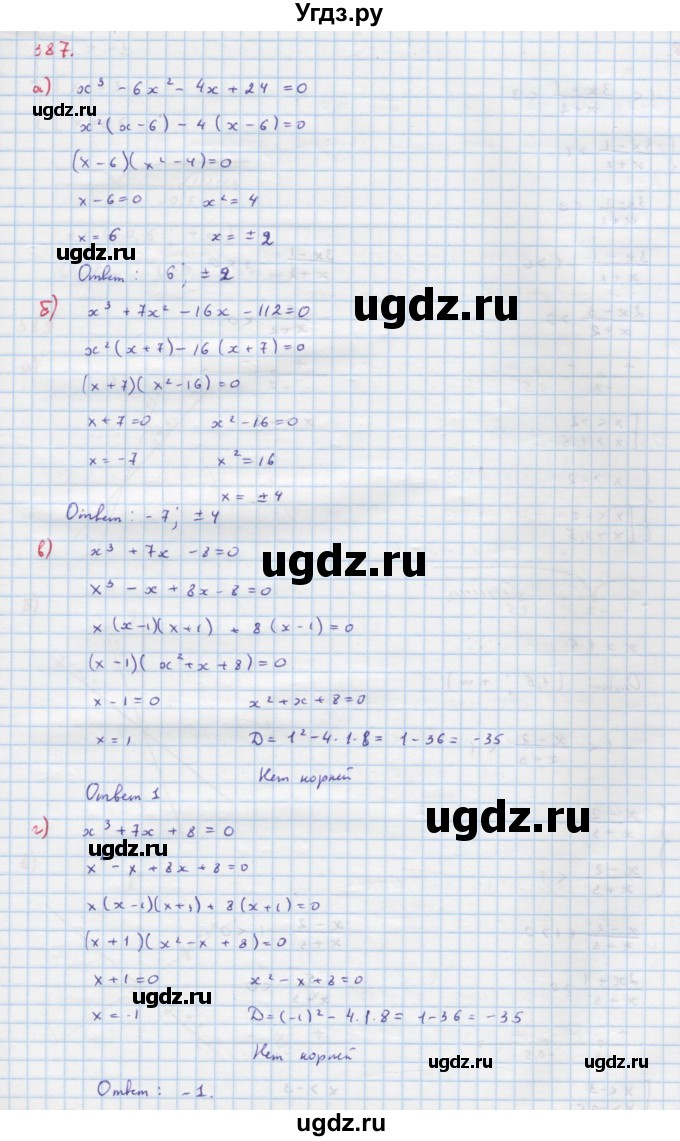 Угдз.ру
387.
а) x³ - 6x² - 4x + 24 = 0
ugdz.ru
x²(x-6) - 4(x-6)=0
(x-6)(x²-4)=0
x-6=0 x²=4
x=6 x=±2
ugdz.ru
Ответ: 6; ±2
ugdz.ru
б) x³ + 7x² - 16x - 112=0
x²(x+7) - 16(x+7)=0
(x+7)(x²-16)=0
x+7=0 x²-16=0
x=-7 x²=16
x=±4
Ответ: -7; ±4
ugdz.ru
в) x³ + 7x - 8=0
x³ - x + 8x - 8=0
x(x-1)(x+1) + 8(x-1)=0
(x-1)(x²+x+8)=0
x-1=0 x²+x+8=0
x=1 D=1²-4·1·8= 1-36= -35
Нет корней
Ответ 1
ugdz.ru
г) x³+7x+8=0
ugdz.ru
x³-x+8x+8=0
x(x-1)(x+1)+8(x+1)=0
(x+1)(x²-x+8)=0
x+1=0 x²-x+8=0
ugdz.ru
x=-1 D=(-1)²-4·1·8= 1-36=-35
Нет корней
ugdz.ru
Ответ: -1.
ugdz.ru